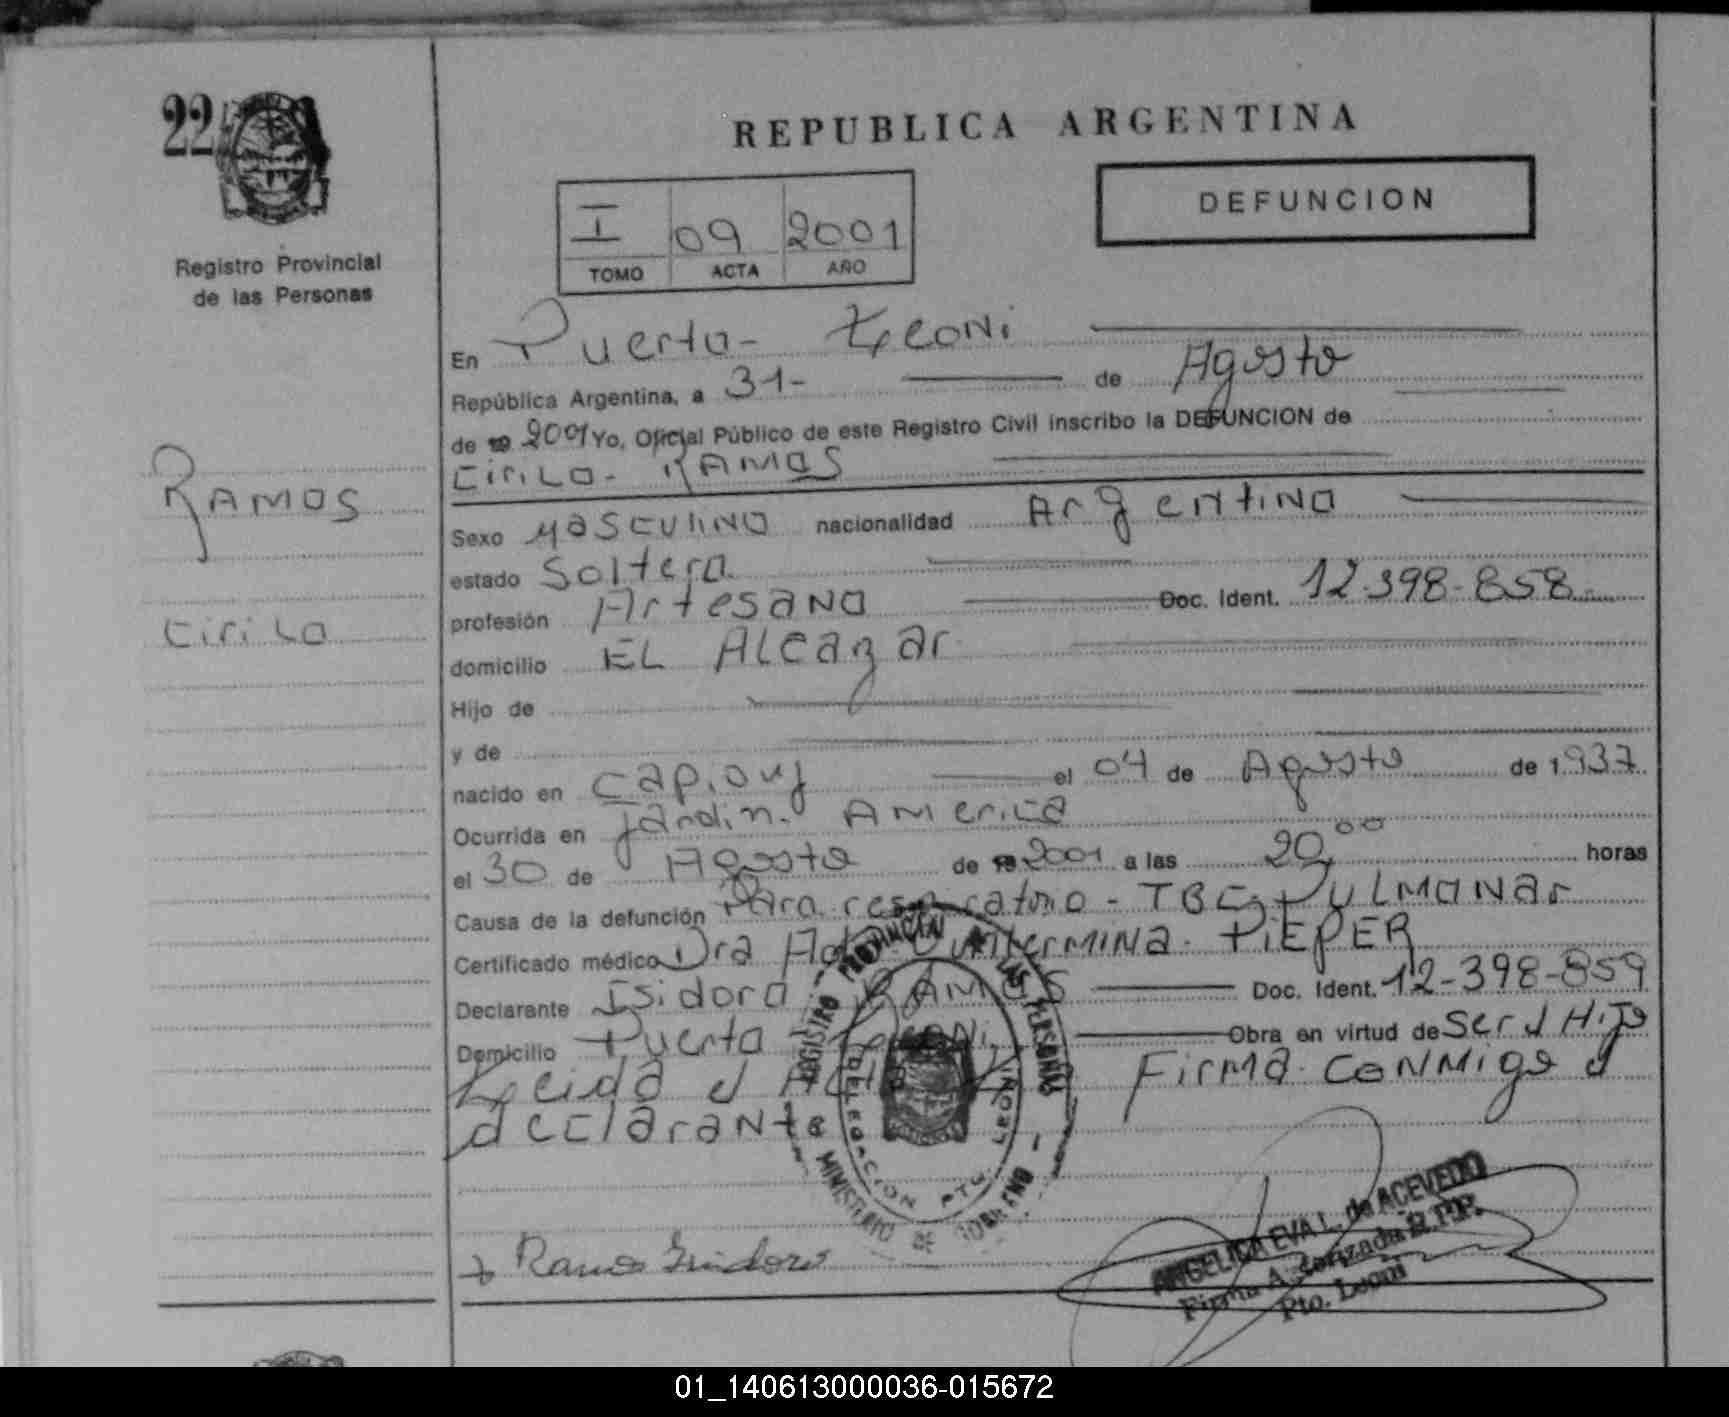 22
REPUBLICA ARGENTINA
DEFUNCION
I 09 2001
TOMO ACTA AÑO
Registro Provincial
de las Personas
En Puerto- Leoni
República Argentina, a 31- de Agosto
de 19 2001 Yo, Oficial Público de este Registro Civil inscribo la DEFUNCION de
Cirilo- RAMOS
RAMOS
Cirilo
Sexo Masculino nacionalidad Argentino
estado Soltero
profesión Artesano Doc. Ident. 12-398-858-
domicilio EL Alcazar
Hijo de
y de
nacido en Capiovy el 04 de Agosto de 1.937
Ocurrida en Jardin. America
el 30 de Agosto de 19 2001 a las 20,00 horas
Causa de la defunción Paro respiratorio - TBC, PULMONAR
Certificado médico Dra PIEPER
Declarante Isidoro RAMOS Doc. Ident. 12-398-859
Domicilio Puerto Leoni, Obra en virtud de Ser el Hijo
Leida el Acta Firma conmigo el
declarante
REGISTRO PROVINCIAL DE LAS PERSONAS
DELEGACION PTO. LEONI
MINISTERIO DE GOBIERNO
Ramos Isidoro
ANGELICA EVA L. de ACEVEDO
Firma Autorizada R.P.P.
Pto. Leoni
01_140613000036-015672